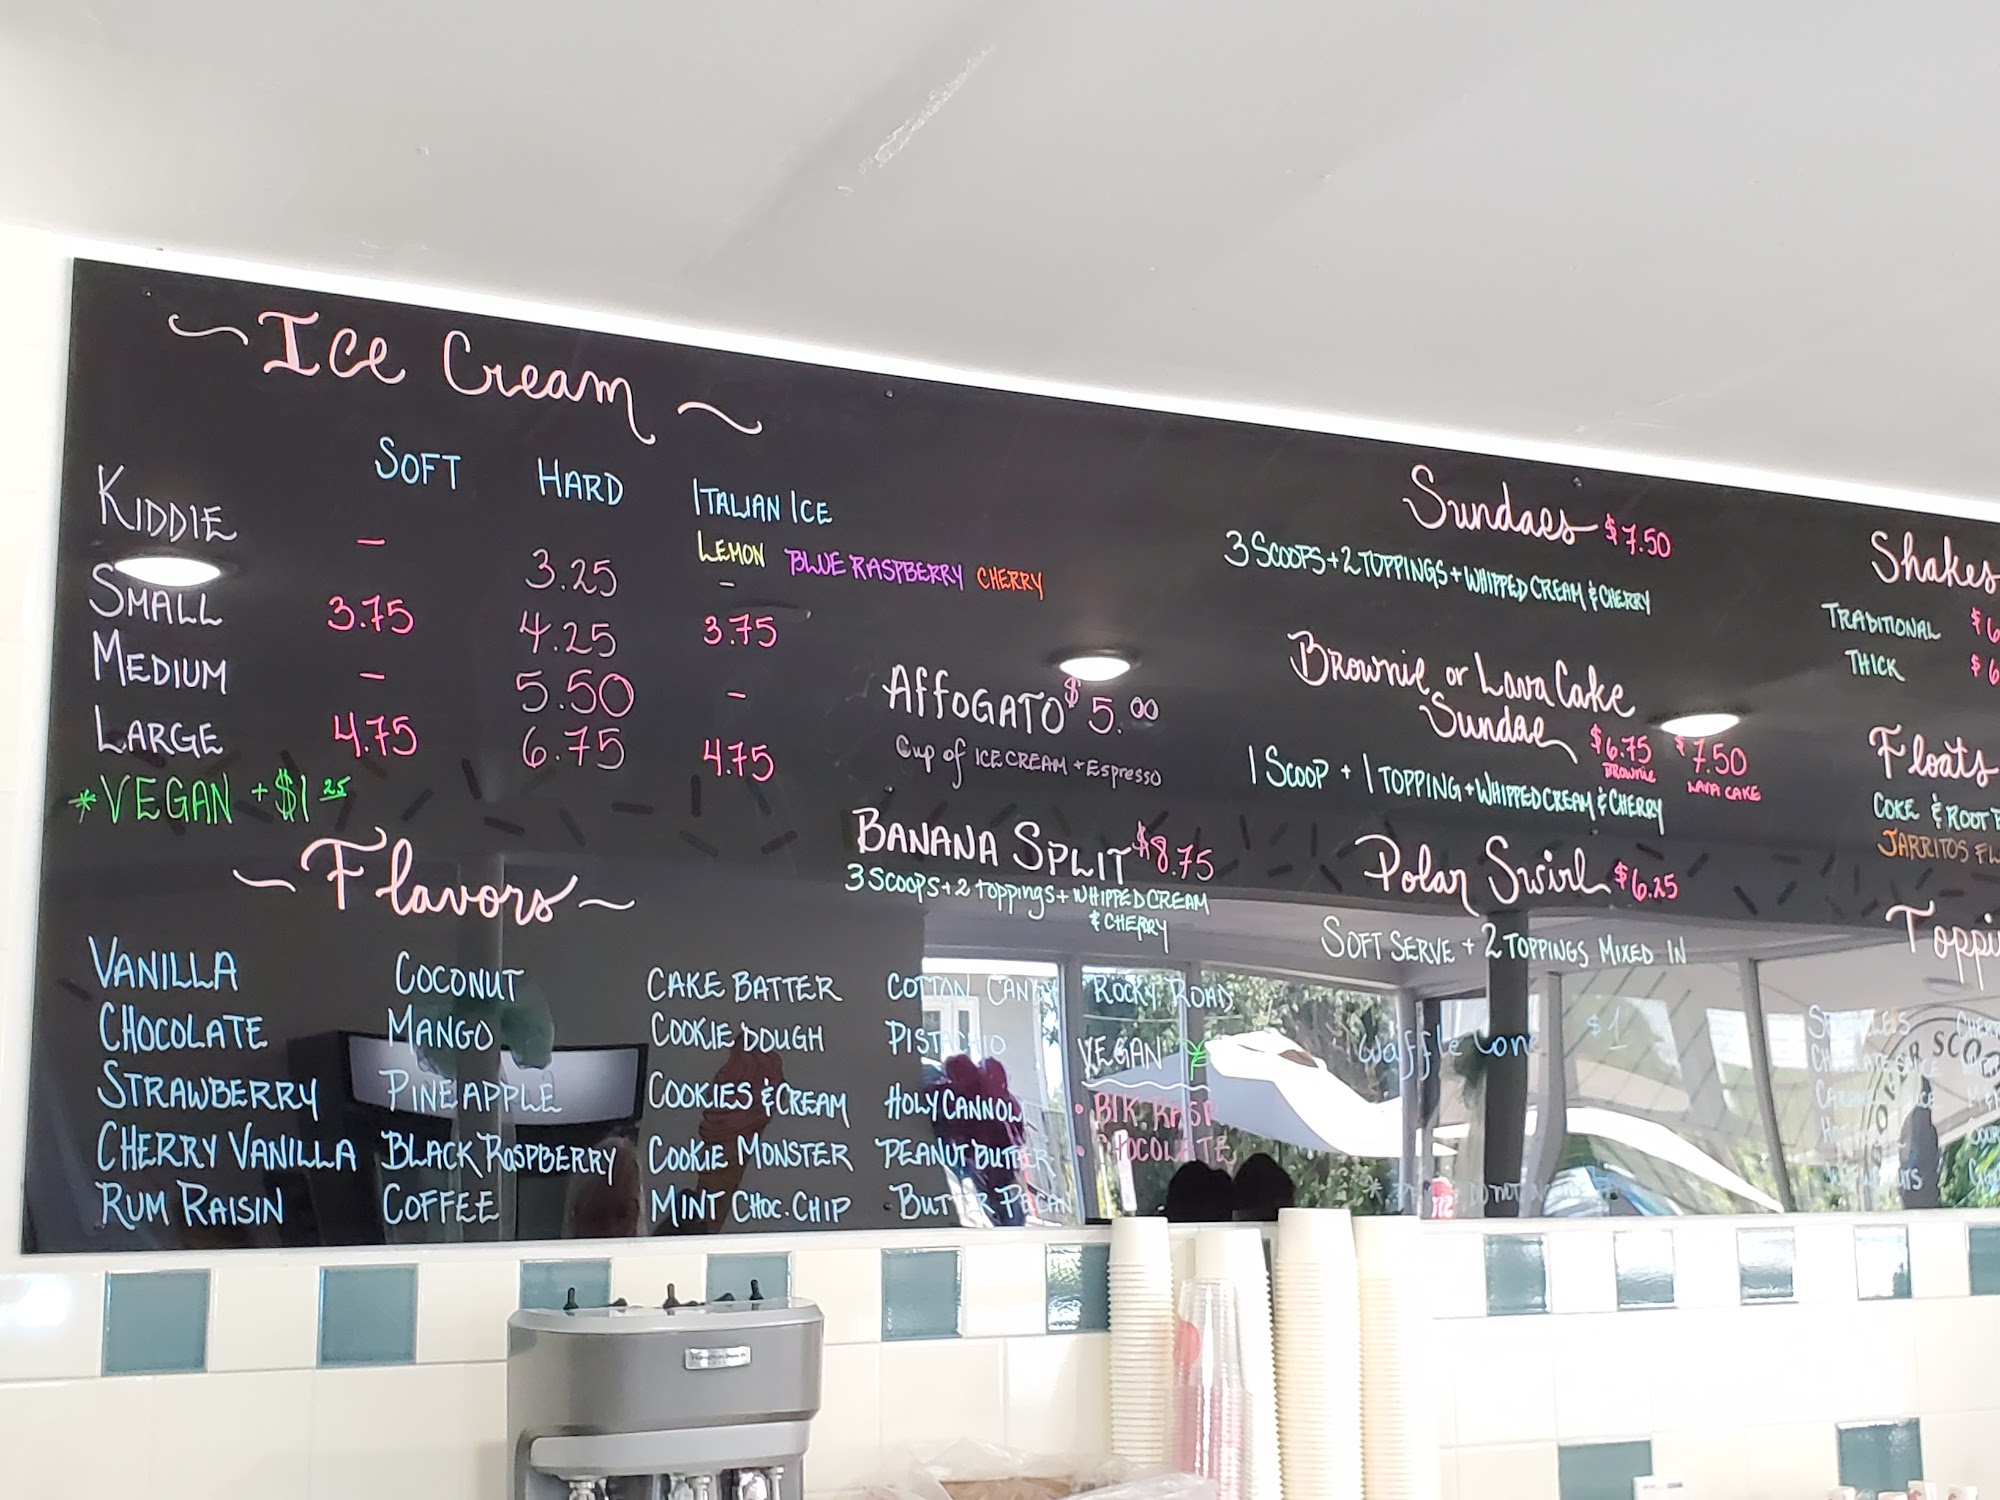 Ice Cream
SOFT HARD ITALIAN ICE
LEMON BLUE RASPBERRY CHERRY
KIDDIE - 3.25 -
SMALL 3.75 4.25 3.75
MEDIUM - 5.50 -
LARGE 4.75 6.75 4.75
*VEGAN +$1.25
Flavors
VANILLA COCONUT CAKE BATTER COTTON CANDY ROCKY ROAD
CHOCOLATE MANGO COOKIE DOUGH PISTACHIO
STRAWBERRY PINEAPPLE COOKIES & CREAM HOLY CANNOLI
CHERRY VANILLA BLACK RASPBERRY COOKIE MONSTER PEANUT BUTTER
RUM RAISIN COFFEE MINT CHOC. CHIP BUTTER PECAN
VEGAN
• BLK. RASP
• CHOCOLATE
AFFOGATO $5.00
Cup of ICE CREAM + Espresso
BANANA SPLIT $8.75
3 SCOOPS + 2 TOPPINGS + WHIPPED CREAM
& CHERRY
Sundaes $7.50
3 SCOOPS + 2 TOPPINGS + WHIPPED CREAM & CHERRY
Brownie or Lava Cake
Sundae $6.75 $7.50
BROWNIE LAVA CAKE
1 SCOOP + 1 TOPPING + WHIPPED CREAM & CHERRY
Polar Swirl $6.25
SOFT SERVE + 2 TOPPINGS MIXED IN
Waffle Cone $1
Shakes
TRADITIONAL $6
THICK $6
Floats
COKE & ROOT B
JARRITOS FL
Toppi